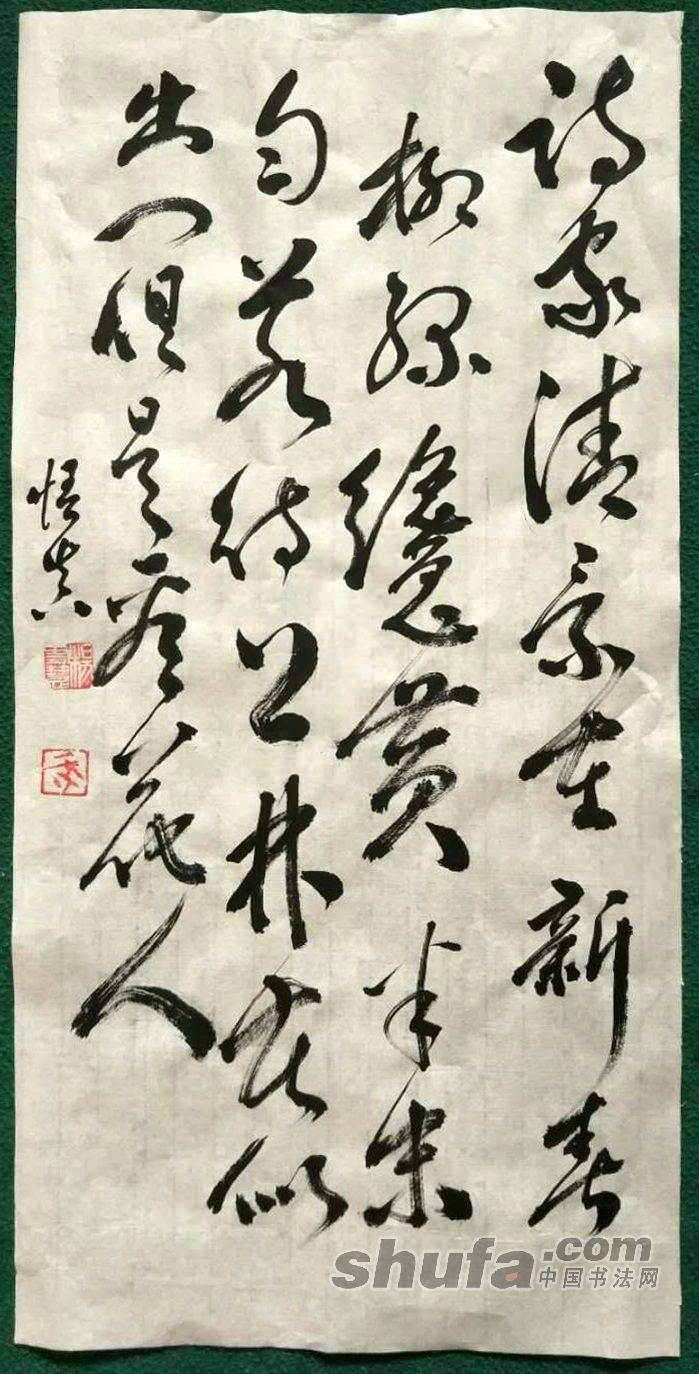 詩家清景在新春
柳綠纔黄半未
勻若待上林花似
出門俱是看花人
悟真
shufa.com
中国书法网